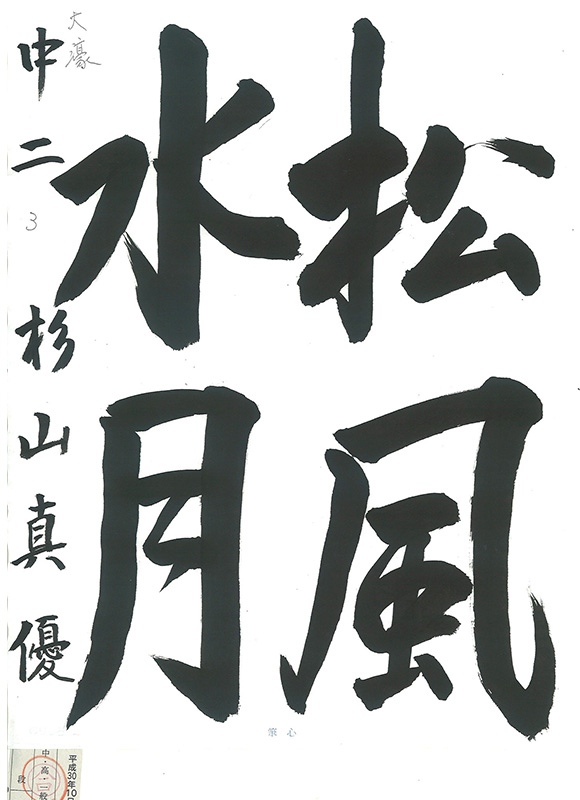 松風
水月
大濠
中二
3
杉山真優
心筆
平成30年10
中・高・一般
段